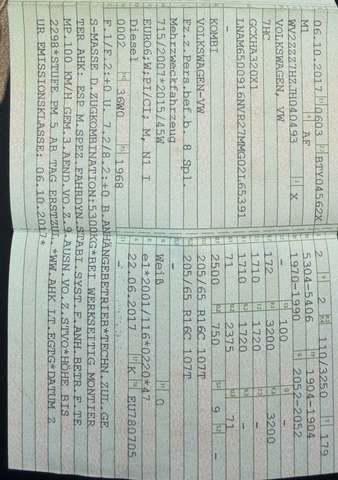 06.10.2017 0603 BTY04562X
M1 AF
WV2ZZZ7HZJH040493 X
VOLKSWAGEN, VW
7HC
GCXHA320X1
LNAM6500916NVR27MMG02L65391
KOMBI
VOLKSWAGEN-VW
Fz.z.Pers.bef.b. 8 Spl.
Mehrzweckfahrzeug
715/2007*2015/45W
EURO6;W;PI/CI; M, N1 I
Diesel
0002 36W0 1968
2 2 110/3250 179
5304-5406 1904-1904
1970-1990 2052-2052
- 100 -
172 3200 3200
1710 1720 -
1710 1720 -
71 2375 71
2500 750 9 -
205/65 R16C 107T
205/65 R16C 107T
-
Weiß 0
e1*2001/116*0220*47
22.06.2017 K EU780705
F.1/F.2:+0 U. 7.2/8.2:+0 B.ANHÄNGEBETRIEB*TECHN.ZUL.GE
S-MASSE D.ZUGKOMBINATION:5300KG*BEI WERKSEITIG MONTIER
TER AHK: ESP M.SPEZ.FAHRDYN.STABI.SYST.F.ANH.BETR.F.TE
MP.100 KM/H GEM.3.AEND.VO.Z.9.AUSN.VO.Z.STVO*HÖHE BIS
2298*STUFE PM 5 AB TAG ERSTZUL.*WW.AHK LT.EGTG*DATUM Z
UR EMISSIONSKLASSE: 06.10.2017*